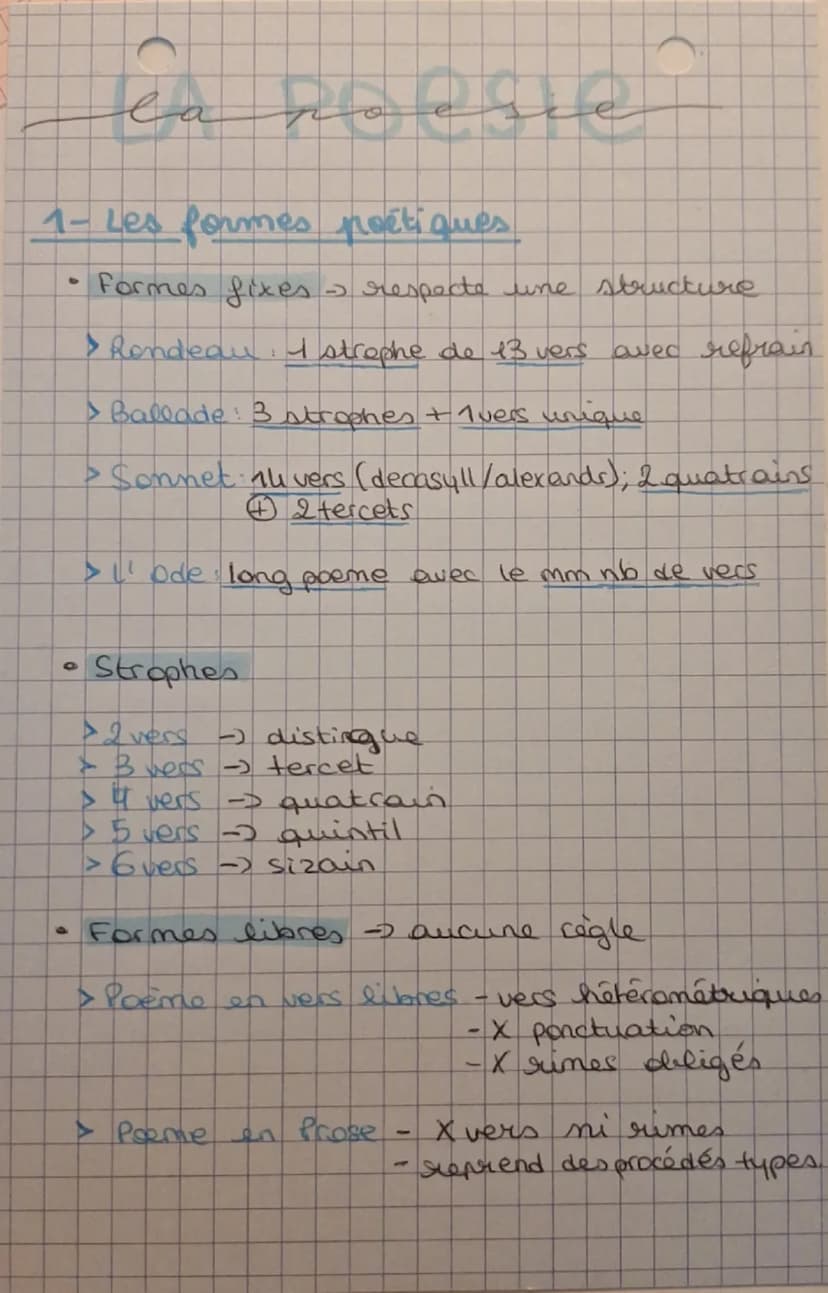 LA POESIE
la poesie
1- Les formes poétiques
• Formes fixes -> respecte une structure
> Rondeau : 1 strophe de 13 vers avec refrain
> Ballade : 3 strophes + 1 vers unique
> Sonnet : 14 vers (decasyll/alexands) ; 2 quatrains
⊕ 2 tercets
> L'ode : long poeme avec le mm nb de vers
• Strophes
> 2 vers -> distingue
> 3 vers -> tercet
> 4 vers -> quatrain
> 5 vers -> quintil
> 6 vers -> sizain
• Formes libres -> aucune règle
> Poème en vers libres - vers hétérométriques
- X ponctuation
- X rimes obligés
> Poeme en Prose - X vers ni rimes
- reprend des procédés types